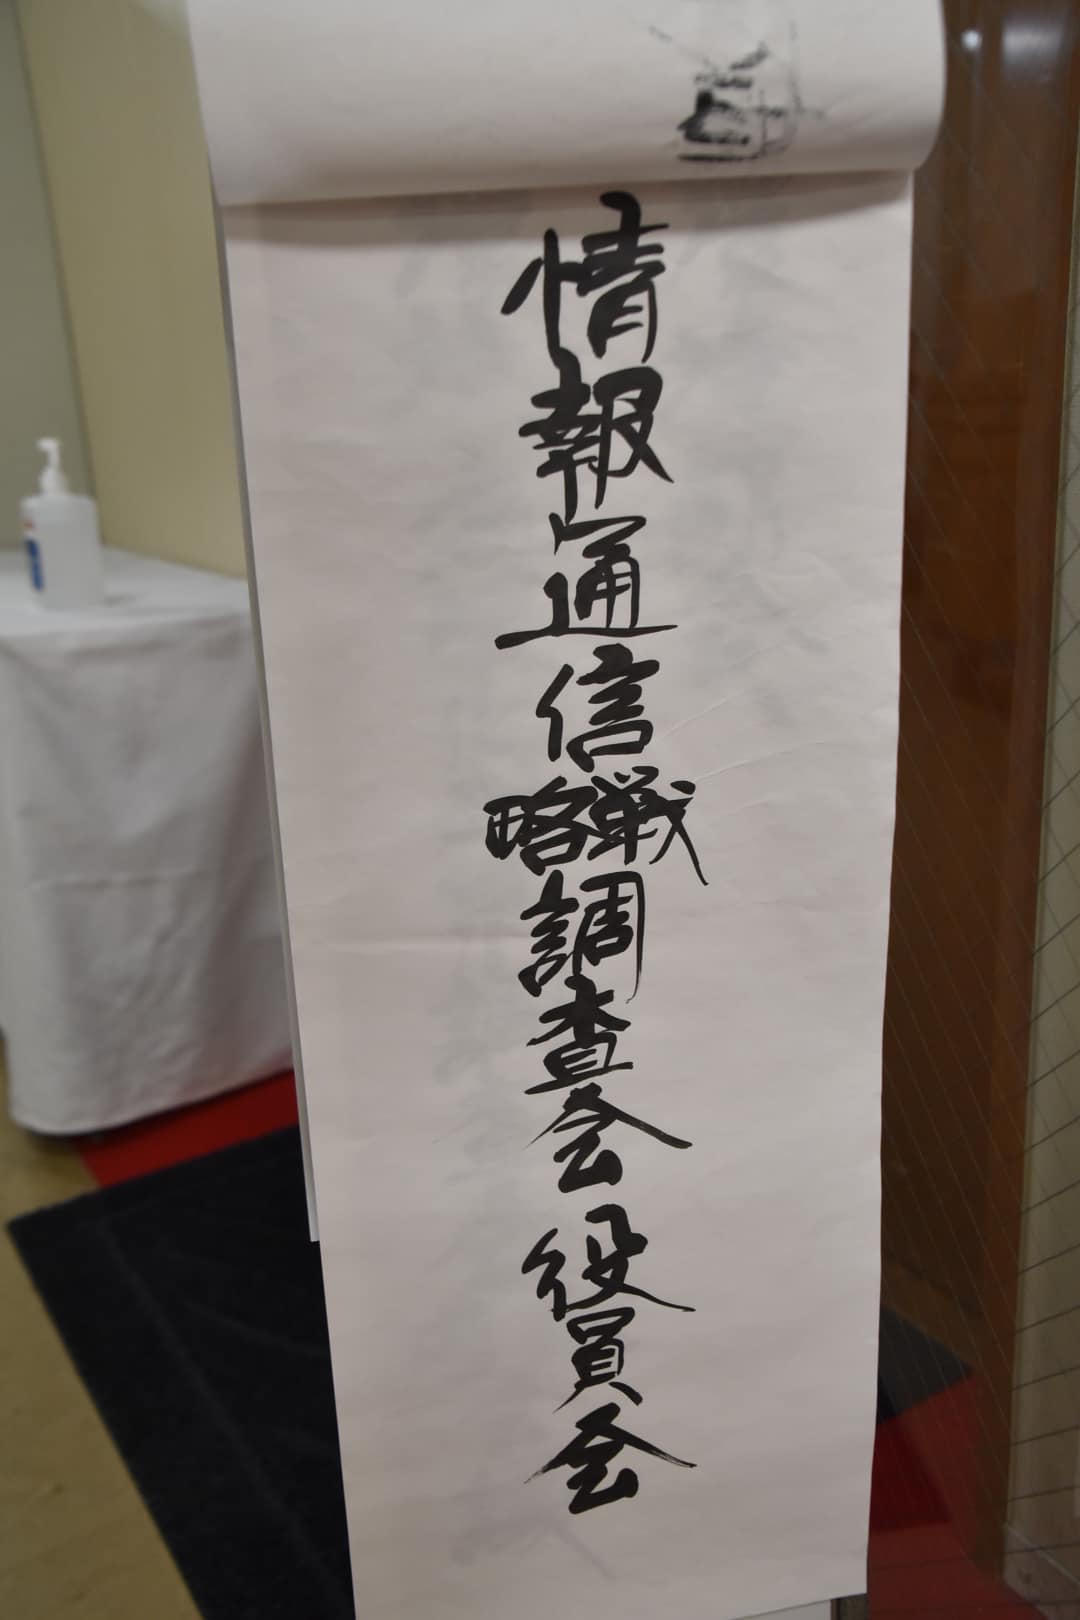 情報通信戦略調査会 役員会